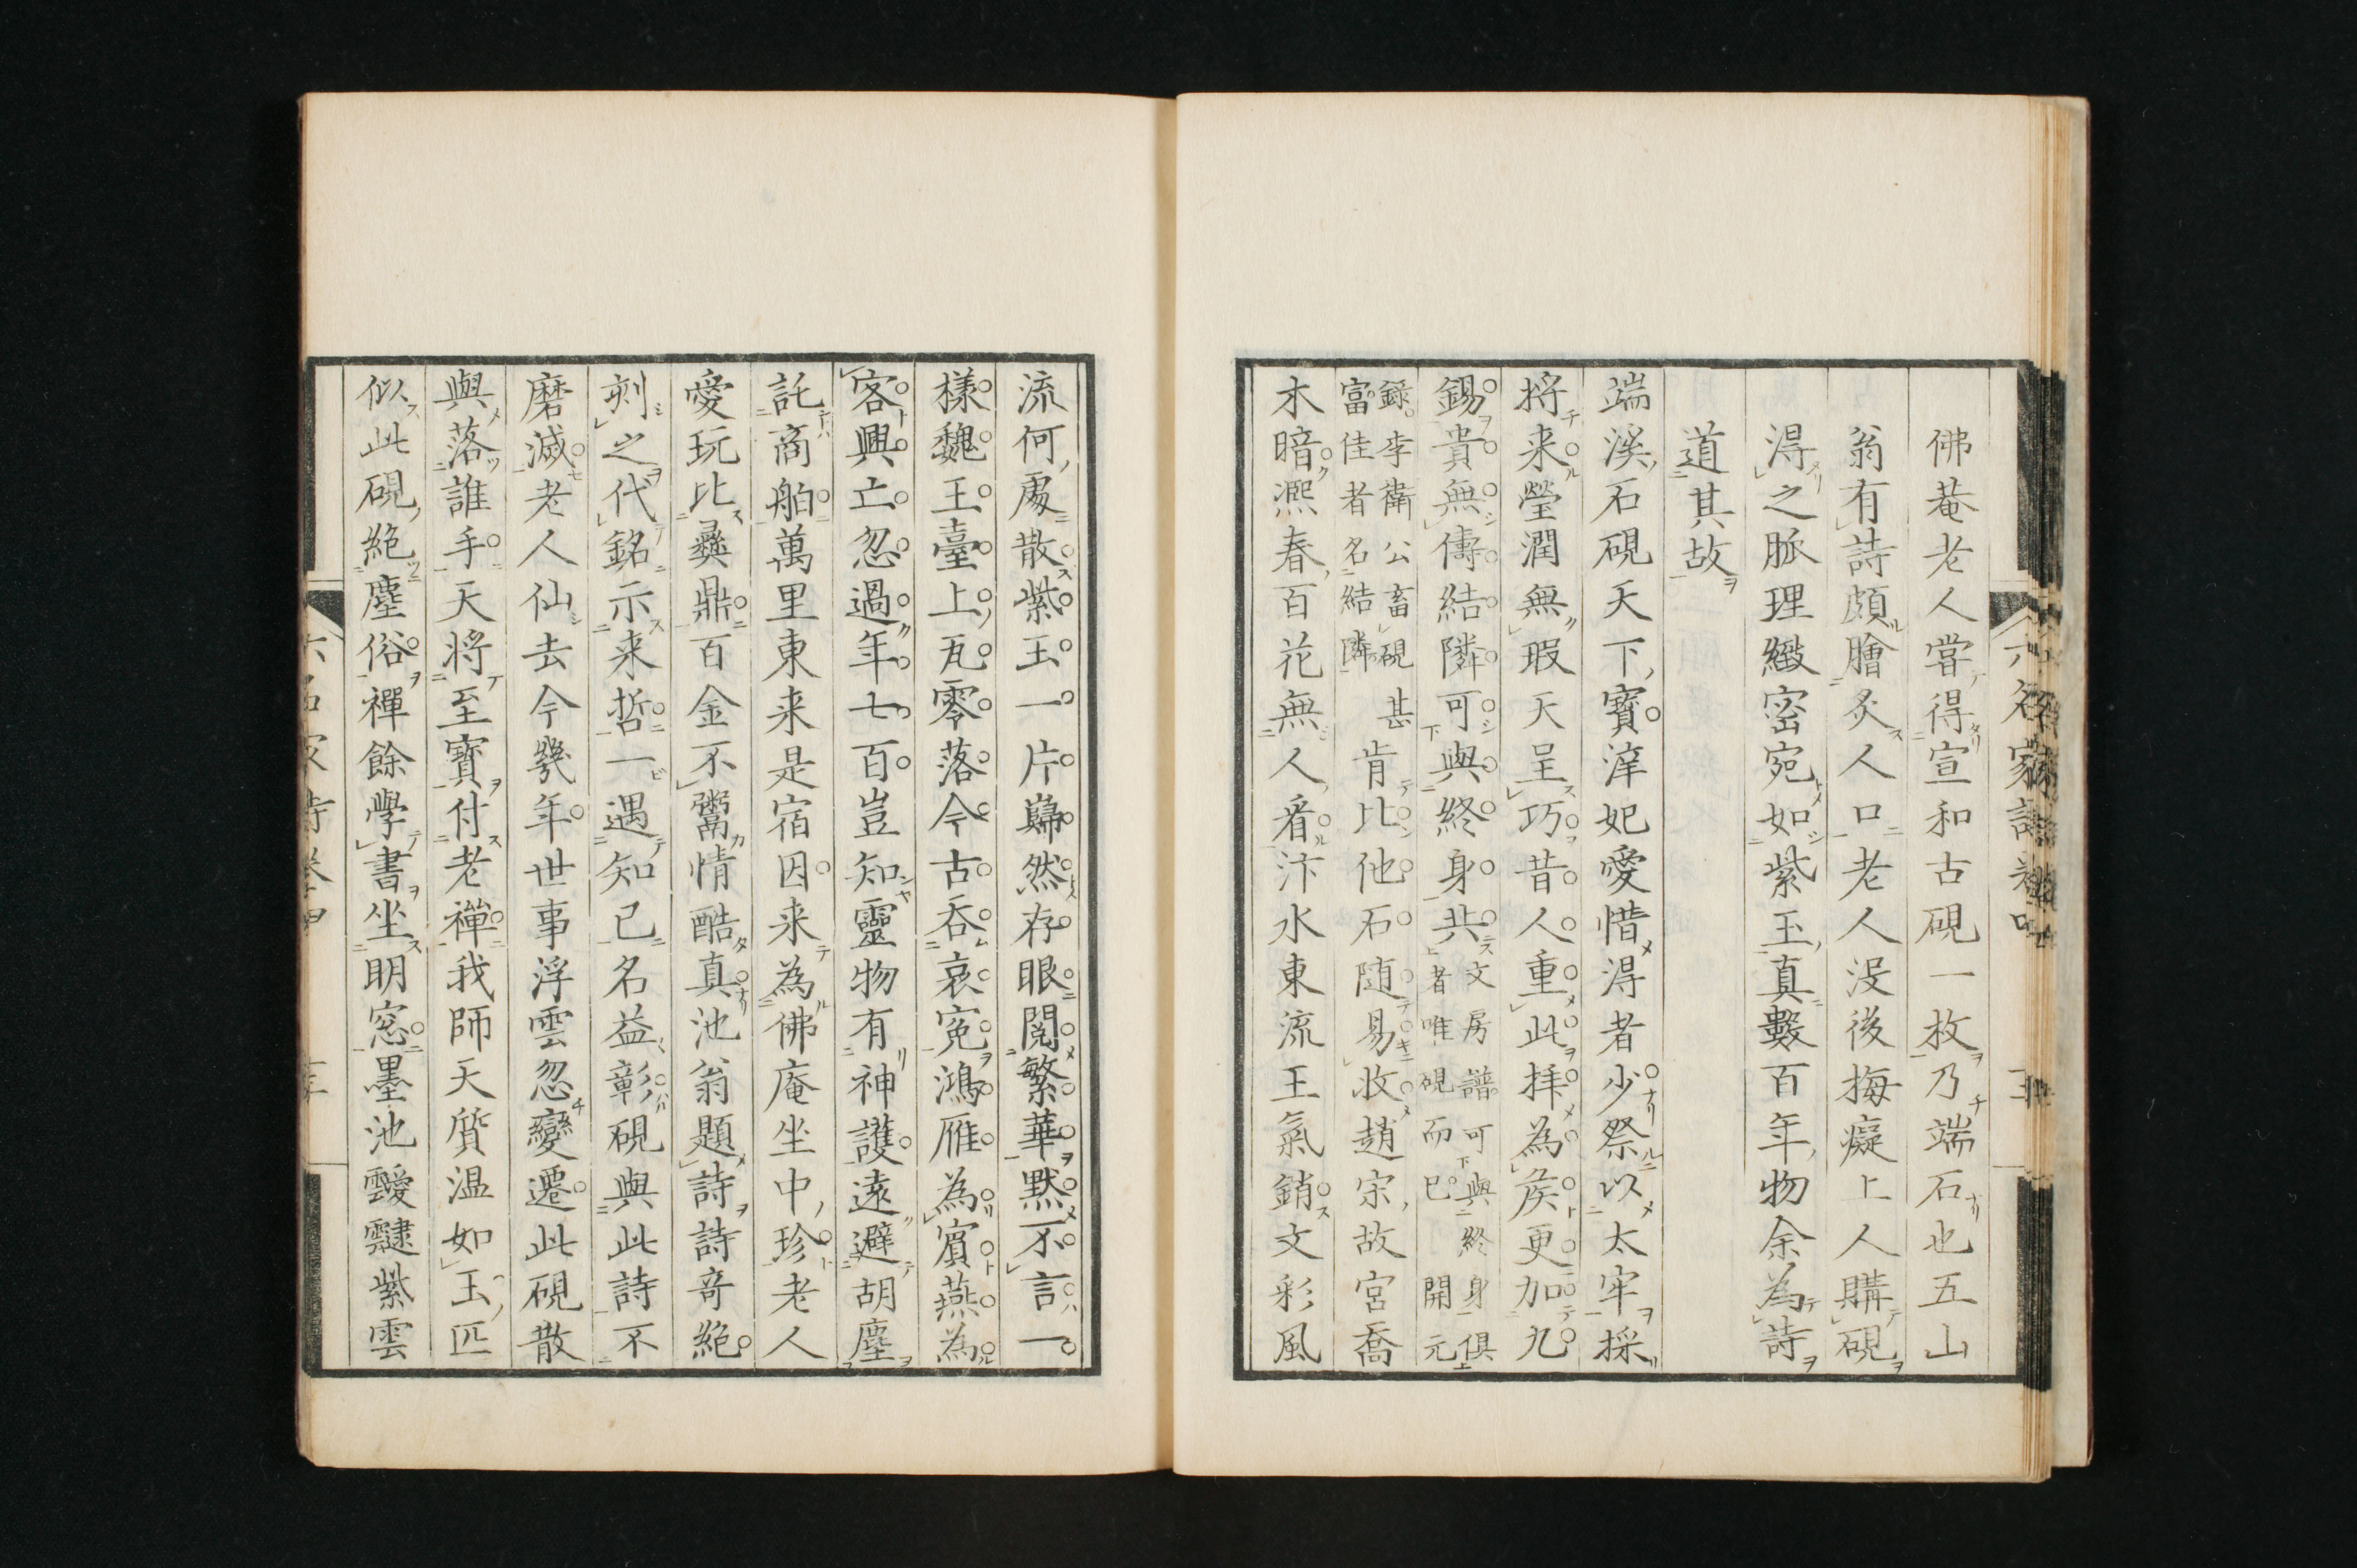 佛菴老人嘗得宣和古硯一枚乃端石也五山
翁有詩頗膾炙人口老人没後梅癡上人購硯
淂之脈理緻密宛如紫玉真數百年物余為詩
道其故
端溪石硯天下寶滓妃愛惜淂者少祭以太牢採
將来瑩潤無瑕天呈巧昔人重此拝為侯更加九
錫貴無傳結隣可與終身共文房譜可與終身俱者唯硯而已開元
錄李衛公畜硯甚富佳者名結隣肯比他石随易收趙宋故宮喬
木暗凞春百花無人看汴水東流王氣銷文彩風
流何處散紫玉一片巋然存眼閲繁華黙不言一
樣魏王臺上瓦零落今古呑哀寃鴻雁為賓燕為
客興亡忽過年七百豈知靈物有神護遠避胡塵
託商舶萬里東来是宿因来為佛庵坐中珍老人
愛玩比彝鼎百金不鬻情酷真池翁題詩詩竒絶
刻之代銘示来哲一遇知己名益彰硯與此詩不
磨滅老人仙去今幾年世事浮雲忽變遷此硯散
與落誰手天將至寶付老禪我師天質温如玉匹
似此硯絶塵俗禪餘學書坐明窓墨池靉靆紫雲